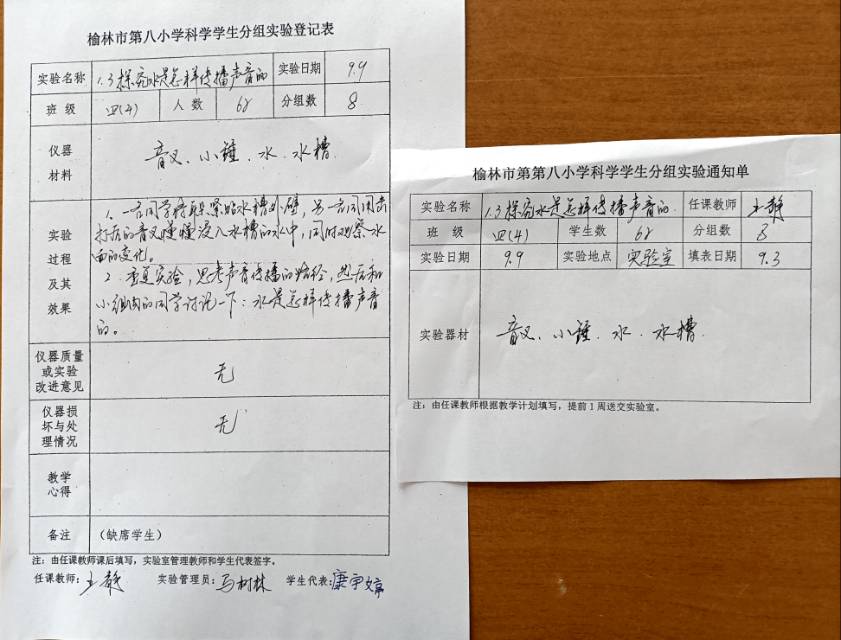 榆林市第八小学科学学生分组实验登记表
实验名称 1.3探究水是怎样传播声音的 实验日期 9.9
班 级 四(4) 人 数 68 分组数 8
仪器材料 音叉、小锤、水、水槽
实验过程及其效果
1. 一名同学将耳朵紧贴水槽外壁,另一名同用击
打后的音叉慢慢浸入水槽的水中,同时观察水
面的变化。
2. 重复实验,思考声音传播的路径,然后和
小组内的同学讨论一下:水是怎样传播声音
的。
仪器质量或实验改进意见 无
仪器损坏与处理情况 无
教学心得
备注 (缺席学生)
注:由任课教师课后填写,实验室管理教师和学生代表签字。
任课教师:王静 实验管理员:马树林 学生代表:康宇婷
榆林市第第八小学科学学生分组实验通知单
实验名称 1.3探究水是怎样传播声音的. 任课教师 王静
班 级 四(4) 学生数 68 分组数 8
实验日期 9.9 实验地点 实验室 填表日期 9.3
实验器材 音叉、小锤、水、水槽.
注:由任课教师根据教学计划填写,提前1周送交实验室。